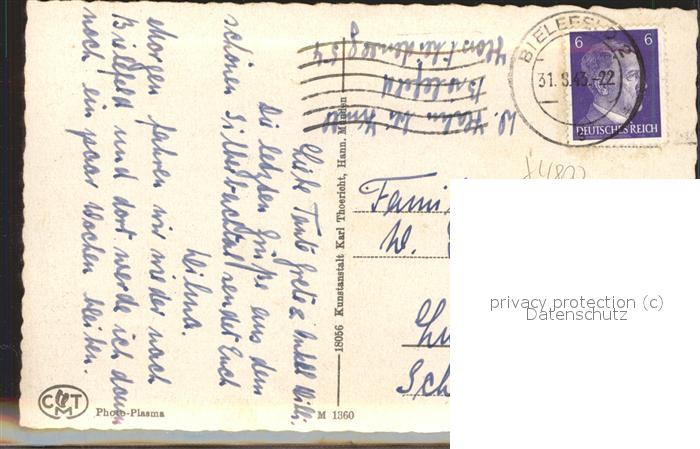 Liebe Tante Grete & Onkel Willi.
Die letzten Grüße aus dem
schönen Silberbachtal sendet Euch
Wilma.
Morgen fahren wir wieder nach
Bielefeld und dort werde ich dann
noch ein paar Wochen bleiben.
W. Hahn
Bielefeld
BIELEFELD 2
31.8.43.-22
6 6
DEUTSCHES REICH
Fami
W.
Sch
privacy protection (c)
Datenschutz
18056 Kunstanstalt Karl Thoericht, Hann. Münden
CMT
Photo-Plasma
M 1360